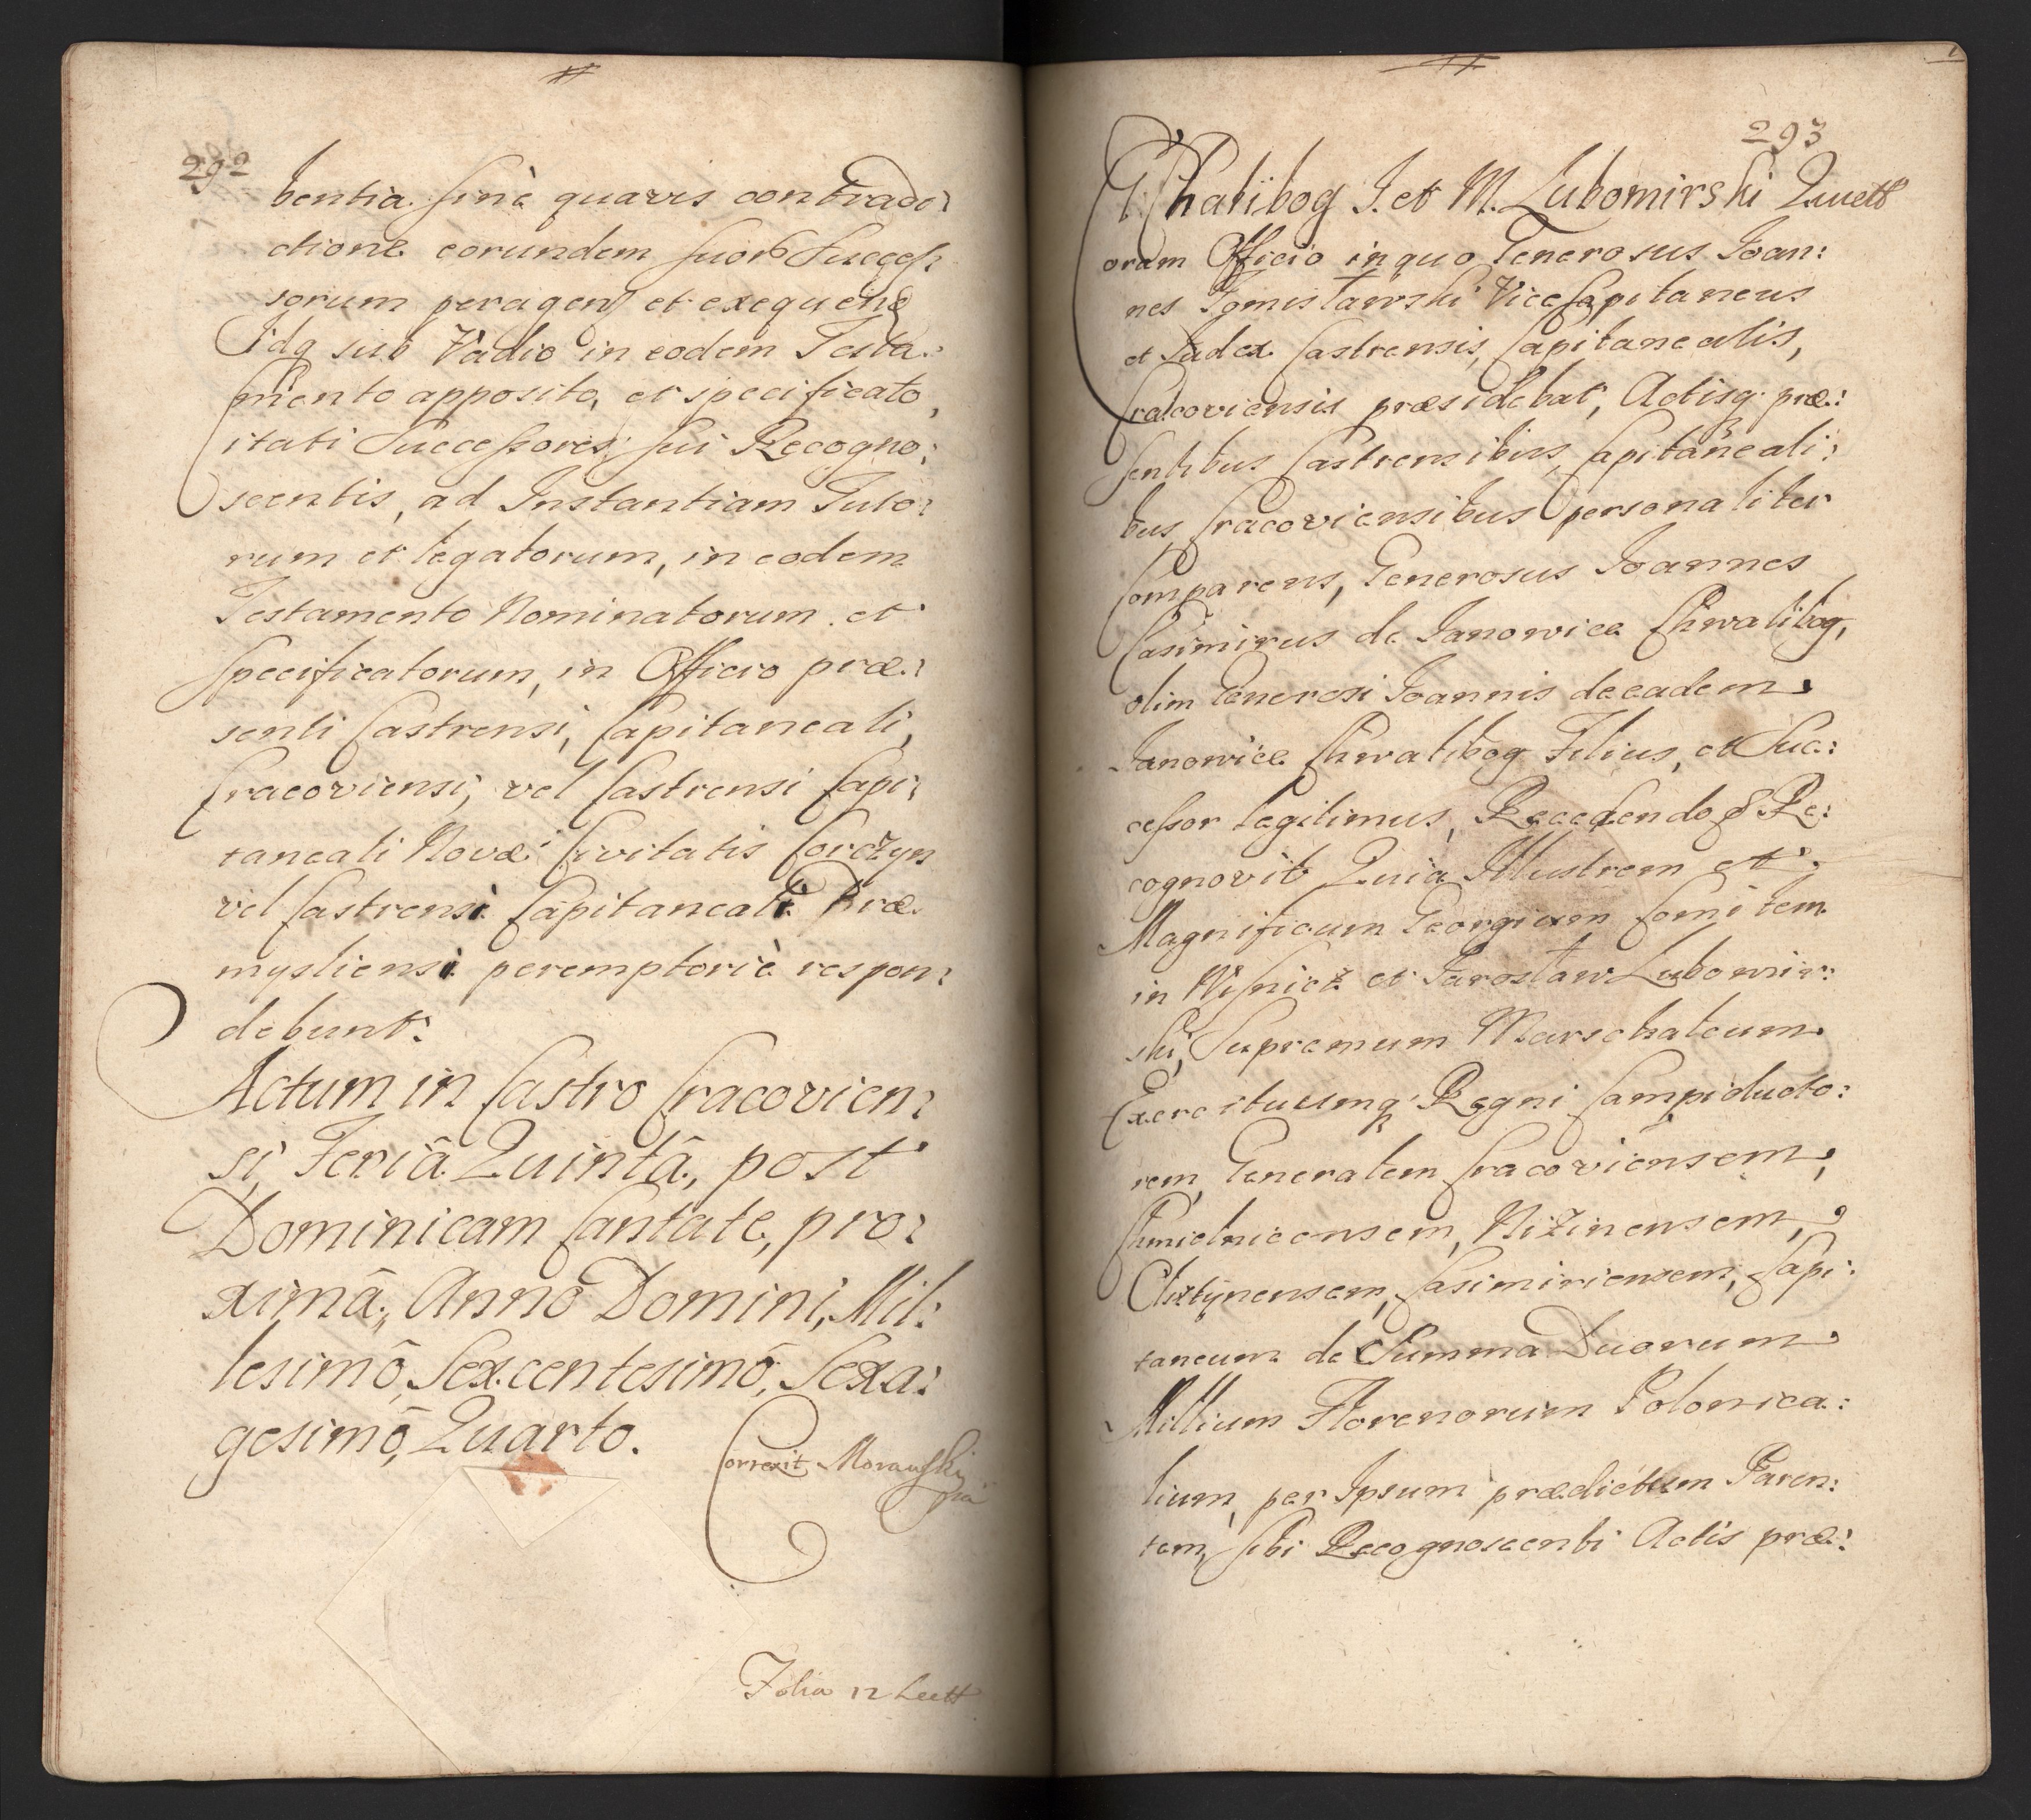 292
bentia sinè quavis contradi:
ctione eorundem suorũ Succes:
sorum peragend et exequend
Idq sub Vadio in eodem Testa:
mento apposito, et specificato,
itati Successores sui Recogno:
scentis, ad Instantiam Tuto:
rum et legatorum, in eodem
Testamento Nominatorum et
specificatorum, in Officio præ:
senti Castrensi, Capitaneali,
Cracoviensi, vel Castrensi Capi:
taneali Novæ Civitatis Corczyn
vel Castrensi Capitaneali Præ
mysliensi peremptoriè respon:
debunt:
Actum in Castro Cracovien:
si, Feriâ Quintâ, post
Dominicam Cantate, pro:
ximâ, Annô Domini, Mil:
lesimô, Sexcentesimô, Sexa:
gesimô, Quarto.
Correxit Morawski
Folia 12
293
Chalibog J. et M. Lubomirski Quiett
oram Officio in quo Generosus Joan:
nes Tomisławski Vice Capitaneus
et Judex Castrensis, Capitanealis,
Cracoviensis præsidebat, Actisq præ:
sentibus Castrensibus, Capitaneali:
bus, Cracoviensibus personaliter
Comparens, Generosus Joannes
Casimirus de Janowice Chwalibog,
olim Generosi Joannis de eadem
Janowice Chwalibog Filius, et Suc:
cessor legitimus, Recedendo & Re:
cognovit Quia Illustrem et
Magnificum Georgium Comitem
in Wisnicz et Jarosław Lubomir:
ski, Supremum Marschalcum
Exercituumq Regni Campiducto:
rem, Generalem Cracoviensem,
Chmielnicensem, Niżinensem,
Olsztynensem, Casimiriensem, Capi:
taneum de Summa Duorum
Millium Florenorum Polonica:
lium, per Ipsum prædictum Paren:
tem, sibi Recognoscenti Actis præ: